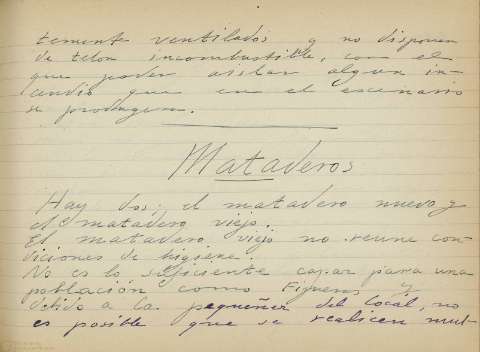 temente ventilados y no disponen
de telon incombustible, con el
que poder aislar algun in-
cendio que en el escenario
se produgera.
Mataderos
Hay dos; el matadero nuevo y
el matadero viejo.
El matadero viejo no reune con-
diciones de higiene.
No es lo suficiente capaz para una
población como Figueras y
debido a la pequeñez del local, no
es posible que se realicen